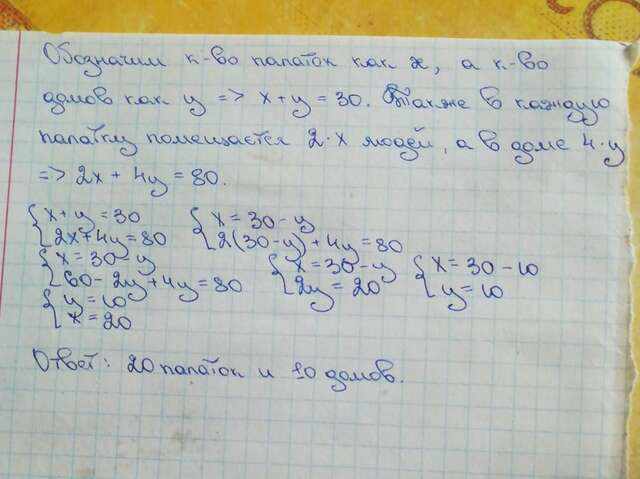 Обозначим к-во палаток как x, а к-во
домов как y => x + y = 30. Также в каждую
палатку помещается 2·x людей, а в доме 4·y
=> 2x + 4y = 80.
{x+y=30 {x=30-y
{2x+4y=80 {2(30-y)+4y=80
{x=30-y {x=30-y {x=30-10
{60-2y+4y=80 {2y=20 {y=10
{y=10
{x=20
Ответ: 20 палаток и 10 домов.